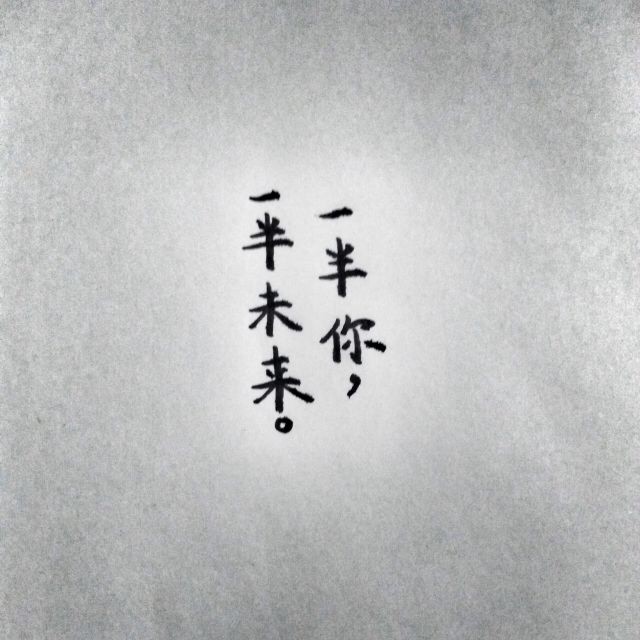 一半你，
一半未来。